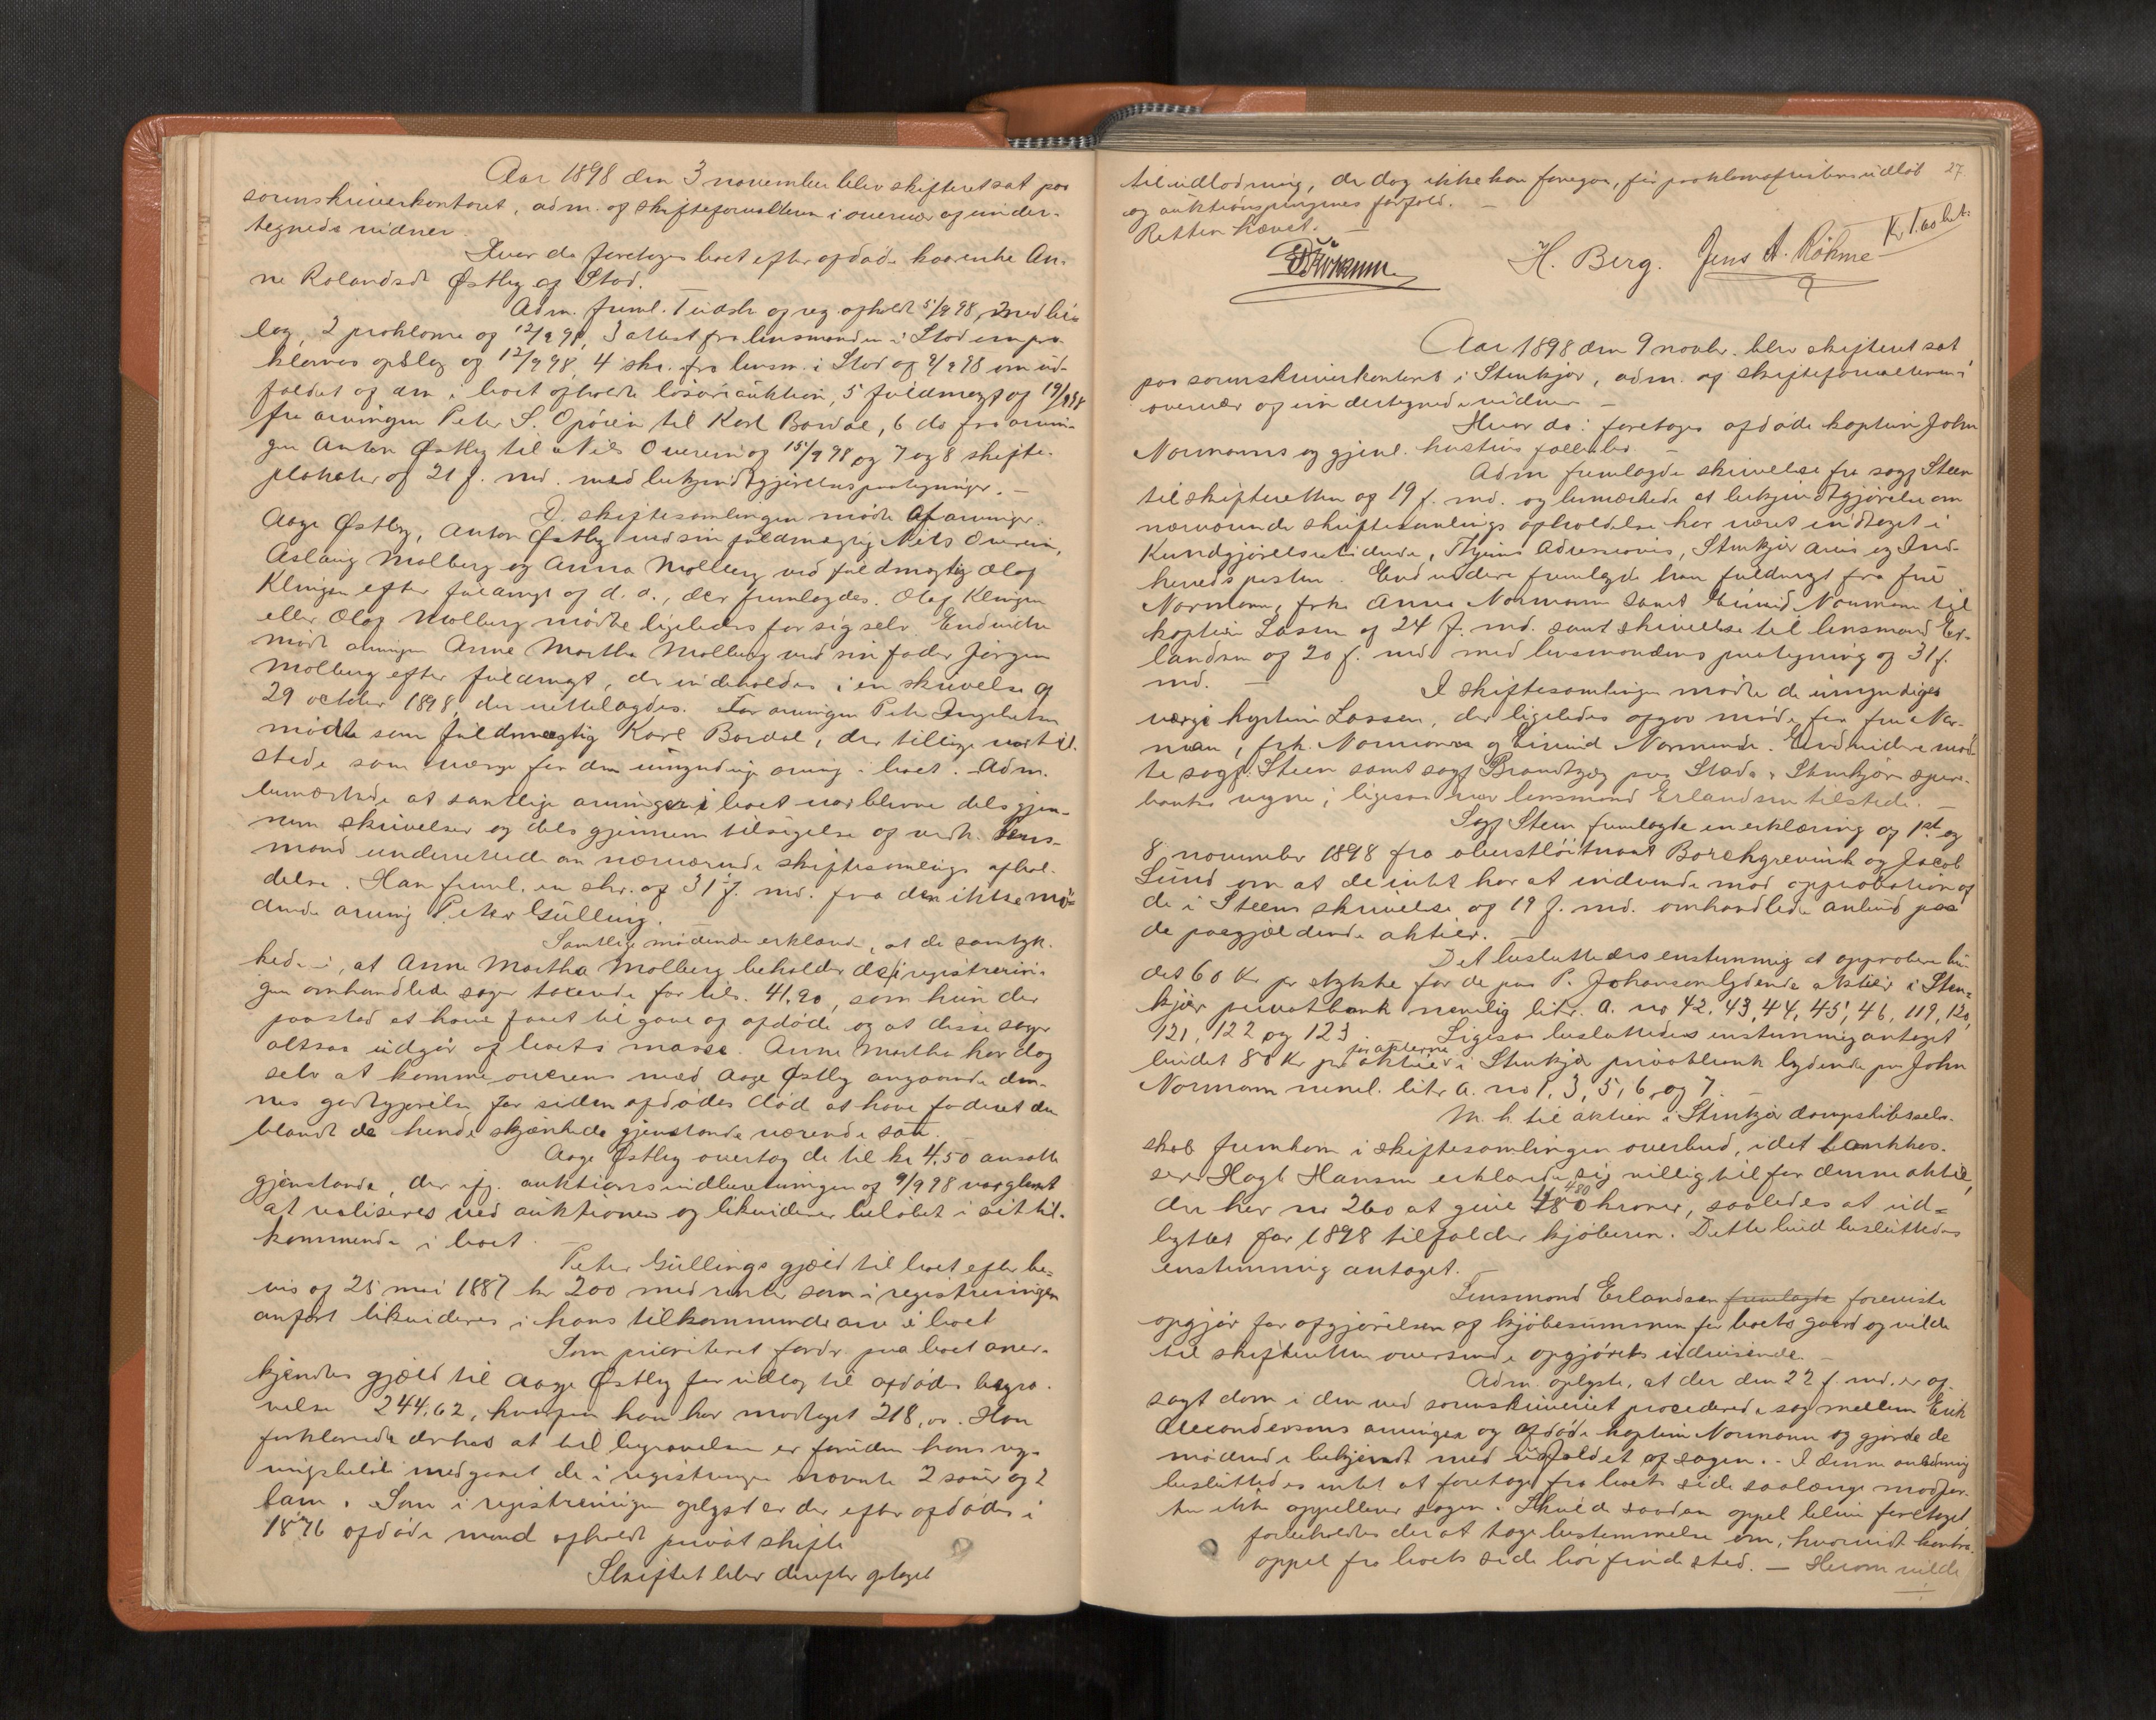 Aar 1898 den 3 november blev skifteret sat paa
sorenskriverkontoret, adm. af skifteforvalteren i overvær af under-
tegnede vidner.
Hvor da foretoges boet efter afdøde kaarenke An-
ne Rolandsdt Østby af Stod.
Adm. freml. 1 udskr af reg. afholdt 5/9 98, med bi-
lag, 2 proklama af 12/9 98, 3 attest fra lensmanden i Stod om pro-
klamas opslag af 12/9 98, 4 skr. fra lensm. i Stod af 9/9 98 om ud-
faldet af den i boet afholdte løsøreauktion, 5 fuldmagt af 19/9 98
fra arvingen Peter S. Opøien til Karl Bardal, 6 do fra arvin-
gen Anton Østby til Nils Overein af 15/9 98 og 7 og 8 skifte-
plakater af 21 f. md. med bekjendtgjørelsespaategninger. –
I skiftesamlingen mødte af arvinger
Aage Østby, Anton Østby ved sin fuldmægtig Nils Overein,
Aslaug Molberg og Anna Molberg ved fuldmægtig Olaf
Klingen efter fuldmagt af d. d., der fremlagdes. Olaf Klingen
eller Olaf Molberg mødte ligeledes for sig selv. Endvidere
mødte arvingen Anne Martha Molberg ved sin fader Jørgen
Molberg efter fuldmagt, der indeholdes i en skrivelse af
29 october 1898 der rettelagdes. For arvingen Peter
mødte som fuldmægtig Karl Bardal, der tillige var til-
stede som værge for den umyndige arving i boet. Adm.
bemærkede at samtlige arvinger i boet var blevne dels gjen-
nem skrivelser og dels gjennem tilsigelse af vedk. lens-
mand underrettede om nærværende skiftesamlings afhol-
delse. Han freml. en skr. af 31 f. md. fra den ikke mø-
dende arving Peter Gulling.
Samtlige mødende erklærede, at de samtyk-
kede i, at Anne Martha Molberg beholder de i registrerin-
gen omhandlede sager taxerede for tils. 41,20, som hun der
paastod at have faaet til gave af afdøde og at disse sager
altsaa udgår af boets masse. Anne Martha har dog
selv at komme overens med Aage Østby angaaende den-
nes godtgjørelse for siden afdødes død at have foderet den
blandt de hende skjænkede gjenstande værende sau.
Aage Østby overtog de til kr 4,50 ansatte
gjenstande, der ifg. auktionsindberetningen af 9/9 98 var glemt
at realiseres ved auktionen og likviderer beløbet i sit til-
kommende i boet.
Peter Gullings gjæld til boet efter be-
vis af 25 mai 1887 kr 200 med renter som i registreringen
anført likvideres i hans tilkommende arv i boet
Som prioriteret fordr. paa boet aner-
kjendtes gjæld til Aage Østby for udlæg til afdødes begra-
velse 244,62, hvorpaa han har modtaget 218,00. Han
forklarede derhos at til begravelsen er foruden hans reg-
ningsbeløb medgaaet de i registreringen nævnte 2 sauer og 2
lam. Som i registreringen oplyst er der efter afdødes i
1876 afdøde mand afholdt privat skifte
Skiftet blev derefter optaget
27
til udlodning, der dog ikke kan foregaa, før proklamafristens udløb
og auktionspengenes forfald. –
Retten hævet. –
H. Berg. Jens A. Røhme
Aar 1898 den 9 novbr. blev skifteret sat
paa sorenskriverkontoret i Stenkjær, adm. af skifteforvalteren i
overvær af undertegnede vidner –
Hvor da: foretages afdøde kaptein John
Normanns og gjenl. hustrus fællesbo –
Adm fremlagde skrivelse fra sagf Steen
til skifteretten af 19 f. md. og bemærkede at bekjendtgjørelse om
nærværende skiftesamlings afholdelse har været indtaget i
Kundgjørelsestidende, Thjems Adresseavis, Stenkjær avis og Ind-
herredsposten. Endvidere fremlagde han fuldmagt fra frue
Normann, frk. Anna Normann samt Eivind Normann til
kaptein Lassen af 24 f. md. samt skrivelse til lensmand Er-
landsen af 20 f. md. med lensmandens paategning af 31 f.
md. –
I skiftesamlingen mødte de umyndiges
værge kaptein Lassen, der ligeledes afgav møde for frue Nor-
man, frk. Normann og Eivind Normann. Endvidere mød-
te sagf. Steen samt sagf Brandtzæg paa Stods & Stenkjær spare-
banks vegne, ligesom var lensmand Erlandsen tilstede. –
Sagf Steen fremlagde en erklæring af 1ste og
8 november 1898 fra oberstløitnant Borchgrevink og Jacob
Lund om at de intet har at indvende mod approbation af
de i Steens skrivelse af 19 f. md. omhandlede anbud paa
de paagjældende aktier. –
Det besluttedes enstemmig at approbere bu-
det 60 Kr pr stykke for de paa P. Johansen lydende aktier i Sten-
kjær privatbank nemlig litr. a. no 42, 43, 44, 45, 46, 119, 120,
121, 122 og 123. Ligesaa besluttedes enstemmig antaget
budet 88 Kr pr aktie for aktierne i Stenkjær privatbank lydende paa John
Normann neml. litr a. no 1, 3, 5, 6 og 7. –
M. h. til aktien i Stenkjær dampskibssels-
skab fremkom i skiftesamlingen overbud, idet bankkas-
serer Hagb Hansen erklærede sig villig til for denne aktie,
der har no 260 at give 480 480 kroner, saaledes at ud-
byttet for 1898 tilfalder kjøberen. Dette bud besluttedes
enstemmig antaget. –
Lensmand Erlandsen fremlagde foreviste
opgjør for afgjørelsen af kjøbesummen for boets gaard og vilde
til skifteretten oversende opgjørets udvisende. –
Adm. oplyste, at der den 22 f. md. er af-
sagt dom i den ved sorenskriveriet procederede sag mellem Erik
Alexandersens arvinger og afdøde kaptein Normann og gjorde de
mødende bekjendt med udfaldet af sagen. – I denne anledning
besluttedes intet at foretage fra boets side saalænge modpar-
ten ikke appellerer sagen. Skulde saadan appel blive foretaget
forbeholdes der at tage bestemmelse om, hvorvidt kontra-
appel fra boets side bør finde sted. – Herom vilde